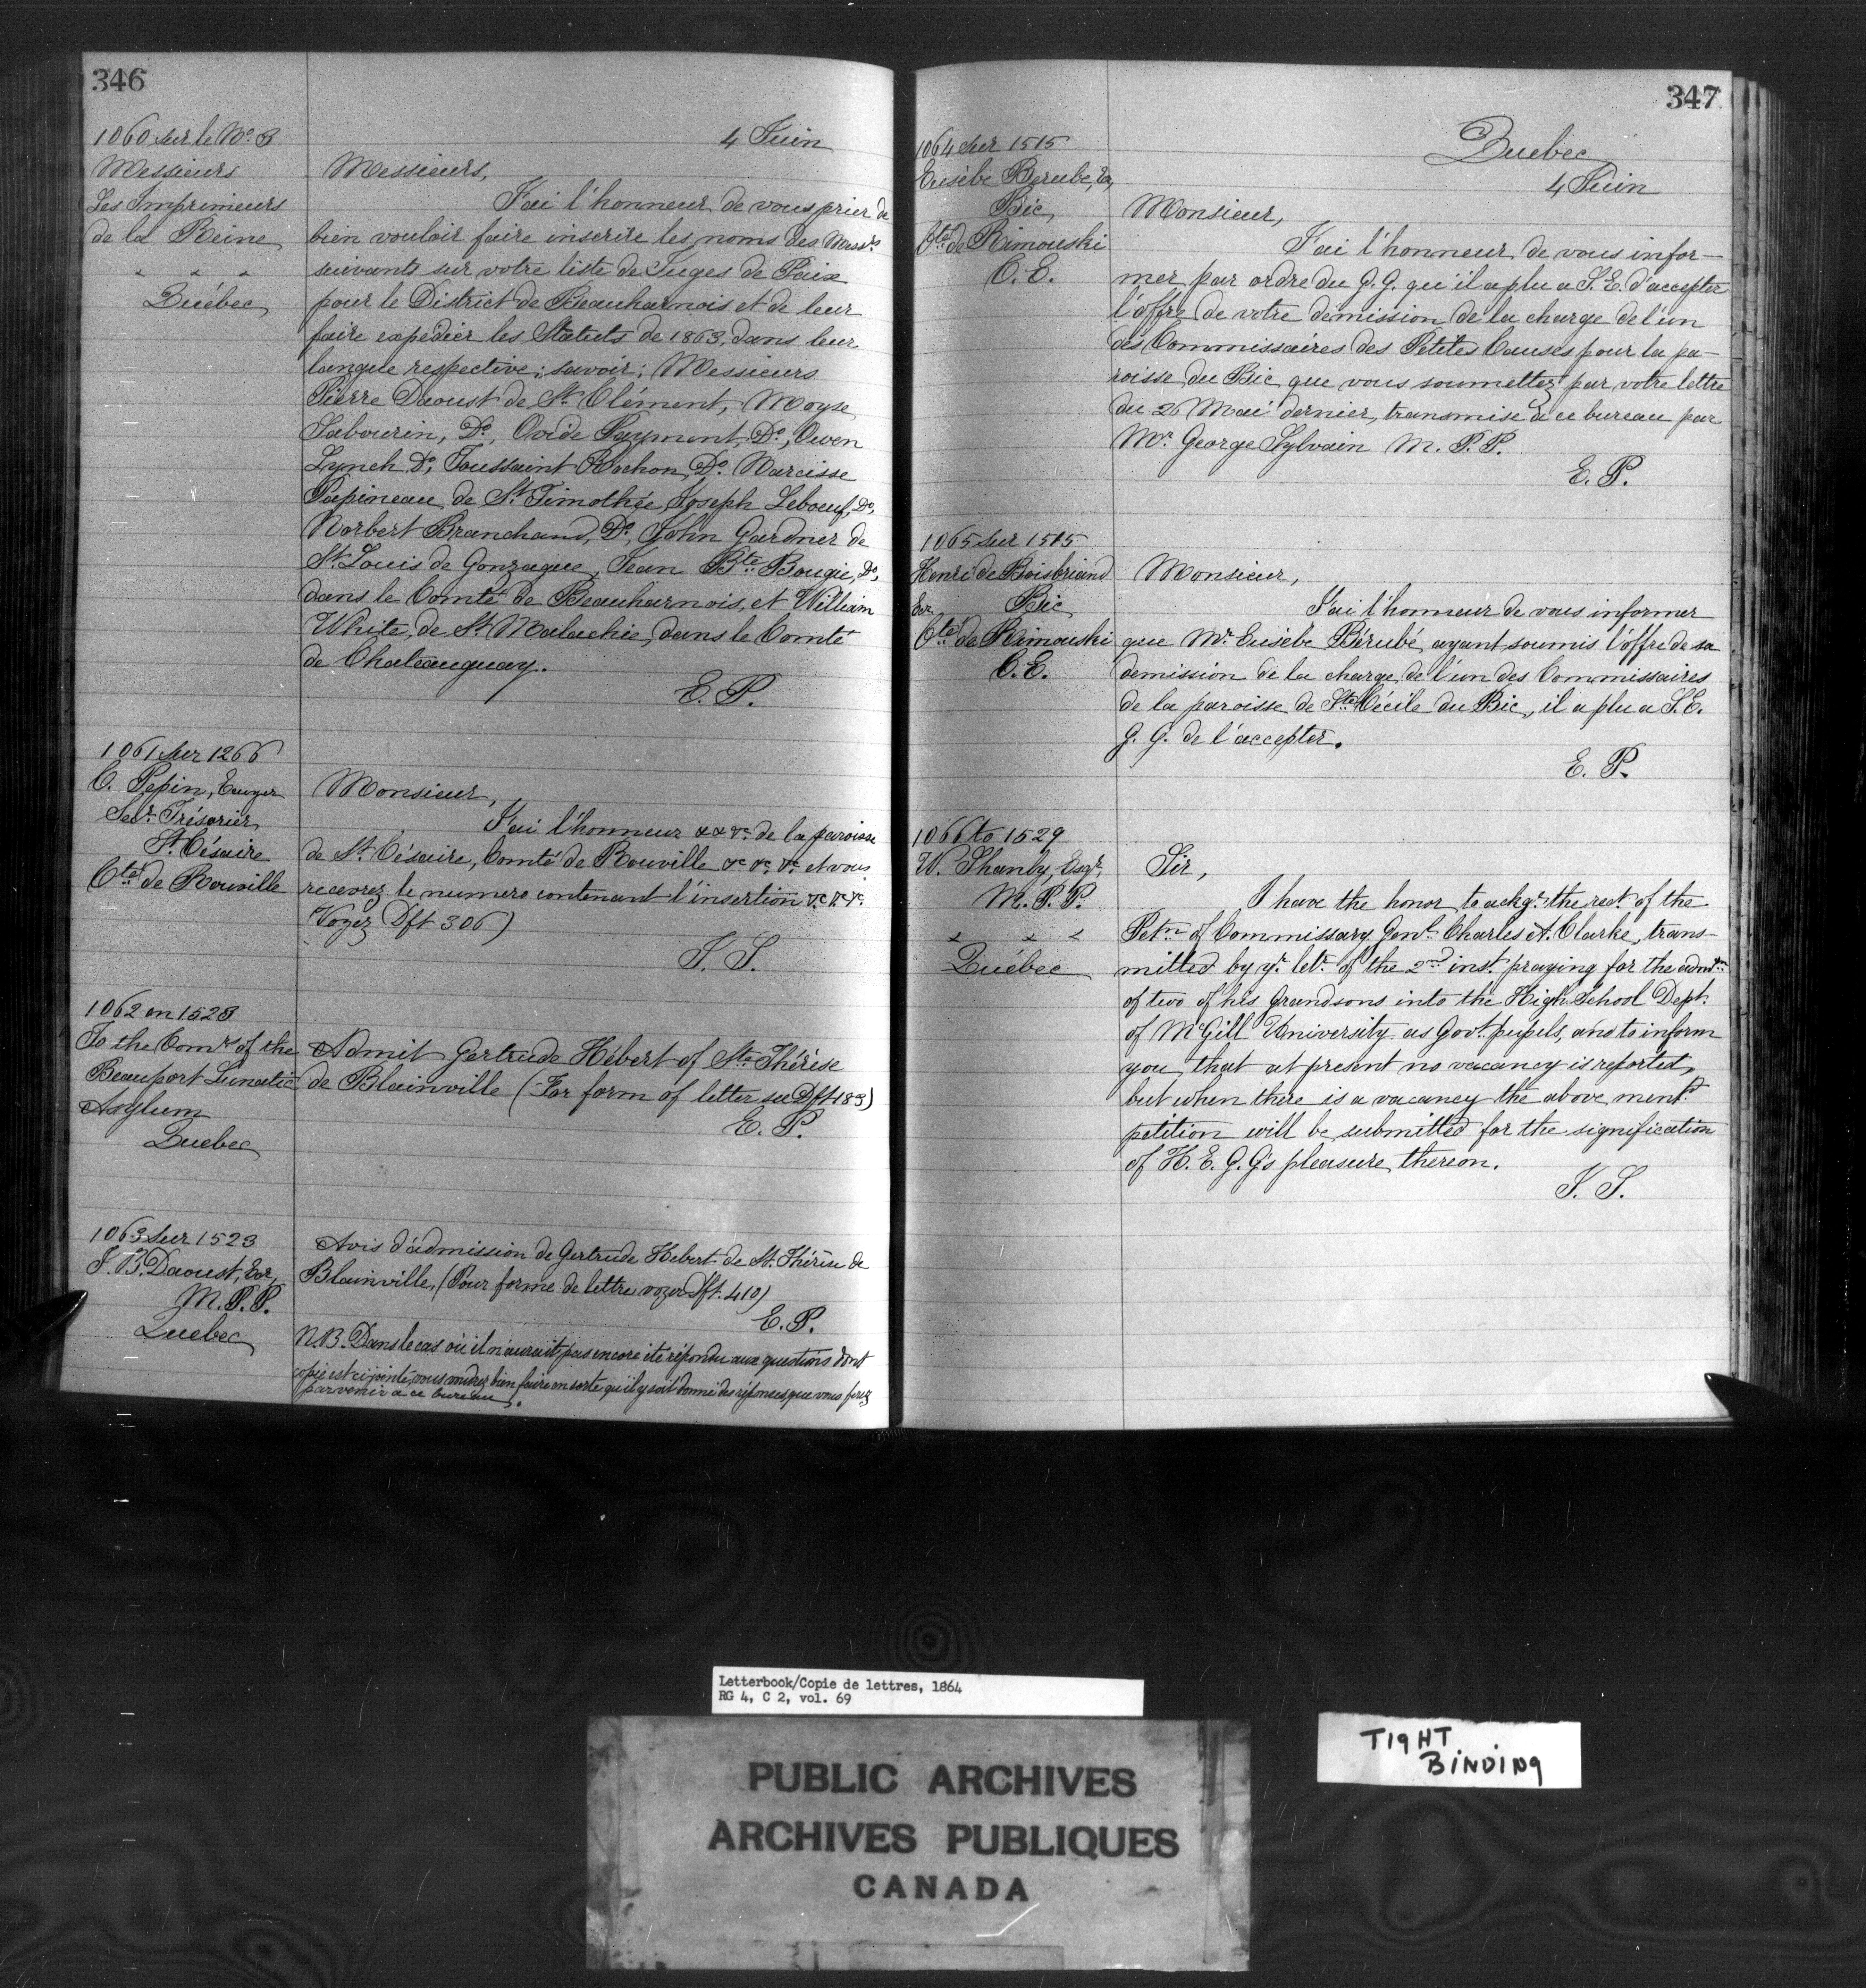 346
1060 sur le No. B
Messieurs
Les Imprimeurs
de la Reine
" " "
Québec
4 Juin
Messieurs,
J'ai l'honneur de vous prier de
bien vouloir faire inscrire les noms des Messrs
suivants sur votre liste de Juges de Paix
pour le District de Beauharnois et de leur
faire expédier les Statuts de 1863, dans leur
langue respective; savoir; Messieurs
Pierre Daoust de St. Clément, Moyse
Sabourin, Do, Ovide Paymunt, Do, Owen
Lynch Do, Toussaint Rochon, Do. Narcisse
Papineau de St. Timothée, Joseph Leboeuf, Do,
Norbert Branchaud, Do, John Gardner de
St. Louis de Gonzague, Jean Bte. Bougie, Do,
dans le Comté de Beauharnois, et William
White, de St Malachie, dans le Comté
de Chateauguay.
E. P.
1061 sur 1266
C. Pepin, Ecuyer
Secr. Trésorier
St. Césaire
Cté de Rouville
Monsieur,
J'ai l'honneur &c &c &c de la paroisse
de St. Césaire, Comté de Rouville &c &c &c et vous
recevrez le numero contenant l'insertion &c &c &c
Voyez Dft 306)
J. S.
1062 on 1523
To the Comrs of the
Beauport Lunatic
Asylum
Quebec
Admit Gertrude Hébert of Ste. Thérèse
de Blainville (For form of letter see Dft 183)
E. P.
1063 sur 1523
J. B. Daoust, Ecr,
M. P. P.
Quebec
Avis d'admission de Gertrude Hebert de St. Thérèse de
Blainville, (Pour forme de lettre voyez Dft. 410)
E. P.
N.B. Dans le cas où il n'aurait pas encore été répondu aux questions dont
copie est ci-jointe, vous voudrez bien faire en sorte qu'il y soit donné des réponses que vous ferez
parvenir à ce bureau.
347
1064 sur 1515
Eusèbe Berube, Ecr,
Bic,
Cté de Rimouski
C. E.
Quebec
4 Juin
Monsieur,
J'ai l'honneur de vous infor-
mer par ordre du G. G. qu'il a plu a S. E. d'accepter
l'offre de votre démission de la charge de l'un
des Commissaires des Petites Causes pour la pa-
roisse du Bic que vous soumettez par votre lettre
du 26 Mai dernier, transmise à ce bureau par
Mr. George Sylvain M. P. P.
E. P.
1065 sur 1515
Henri de Boisbriand
Ecr. Bic
Cté de Rimouski
C. E.
Monsieur,
J'ai l'honneur de vous informer
que Mr. Eusèbe Bérubé, ayant soumis l'offre de sa
demission de la charge de l'un des Commissaires
de la paroisse de Ste Cécile du Bic, il a plu a S. E.
G. G. de l'accepter.
E. P.
1066 to 1529
W. Shanly, Esqr.
M. P. P.
" " "
Québec
Sir,
I have the honor to ackge. the rect. of the
Petn. of Commissary Genl. Charles A. Clarke, trans-
mitted by yr. letr. of the 2nd inst. praying for the admtn
of two of his grandsons into the High School Dept.
of McGill University as Govt. pupils, and to inform
you that at present no vacancy is reported,
but when there is a vacancy the above mentd.
petition will be submitted for the signification
of H. E. G. G's pleasure thereon.
J. S.
Letterbook/Copie de lettres, 1864
RG 4, C 2, vol. 69
PUBLIC ARCHIVES
ARCHIVES PUBLIQUES
CANADA
TIGHT
BINDING